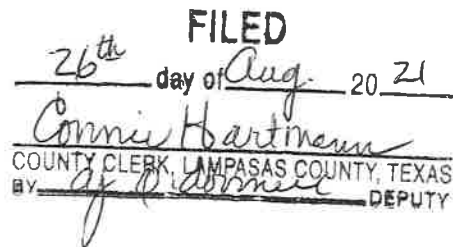 FILED
26th day of Aug. 20 21
Connie Hartmann
COUNTY CLERK, LAMPASAS COUNTY, TEXAS
BY O'Donnell DEPUTY